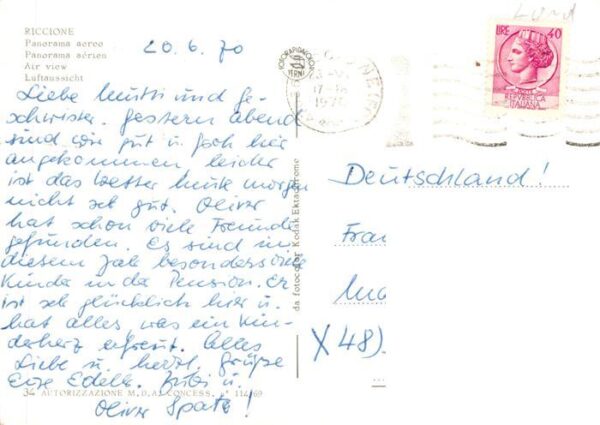 RICCIONE
Panorama aereo
Panorama aérien
Air view
Luftaussicht
20.6.70
LIRE 40
REPVBBLICA
ITALIANA
17-18
1970
Liebe Mutti und Ge-
schwister. Gestern abend
sind wir gut u. froh hier
angekommen leider
ist das Wetter heute morgen
nicht seh gut. Oliver
hat schon viele Freunde
gefunden. Es sind in
diesem Jahr besonders viele
Kinder in der Pension. Er
ist seh glücklich hier u.
hat alles was ein Kin-
derherz erfreut. Alles
Liebe u. herzl. Grüße
Eure Edelh. u.
Oliver Spatz!
da fotocolor Kodak Ektachrome
Deutschland!
Frau
X 48).
34 AUTORIZZAZIONE M.D.A. CONCESS. n° 114/69